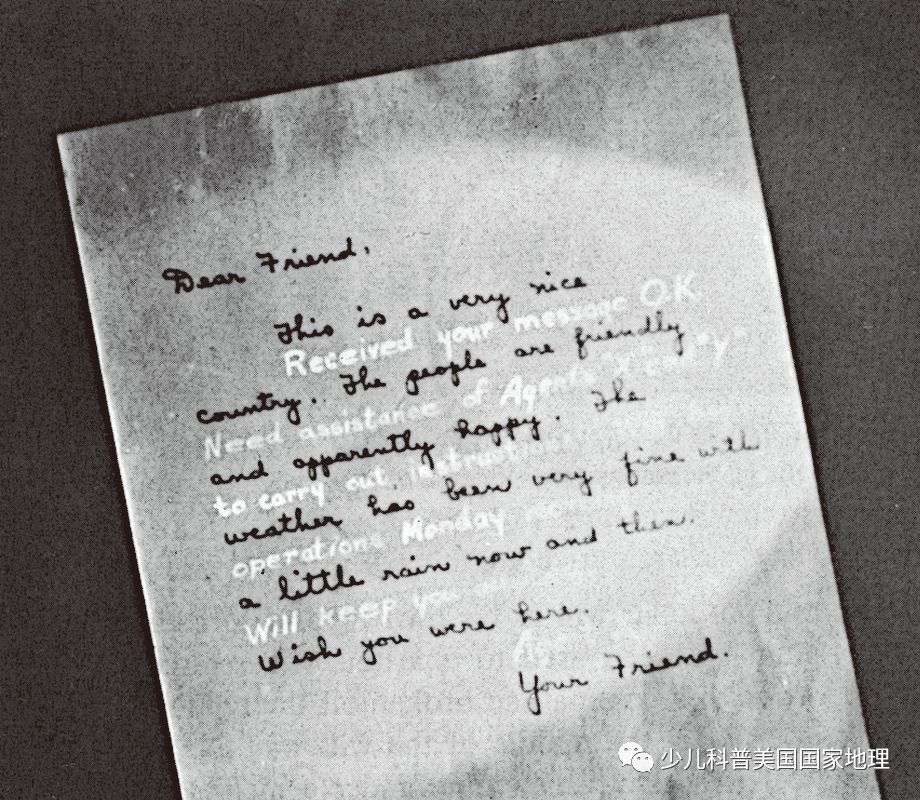 Dear Friend,
This is a very nice
Received your message O.K
country. The people are friendly
Need assistance of Agents
and apparently happy. The
to carry out
weather has been very fine with
operations Monday
a little rain now and then.
Will keep you
Wish you were here.
Your Friend.
少儿科普美国国家地理